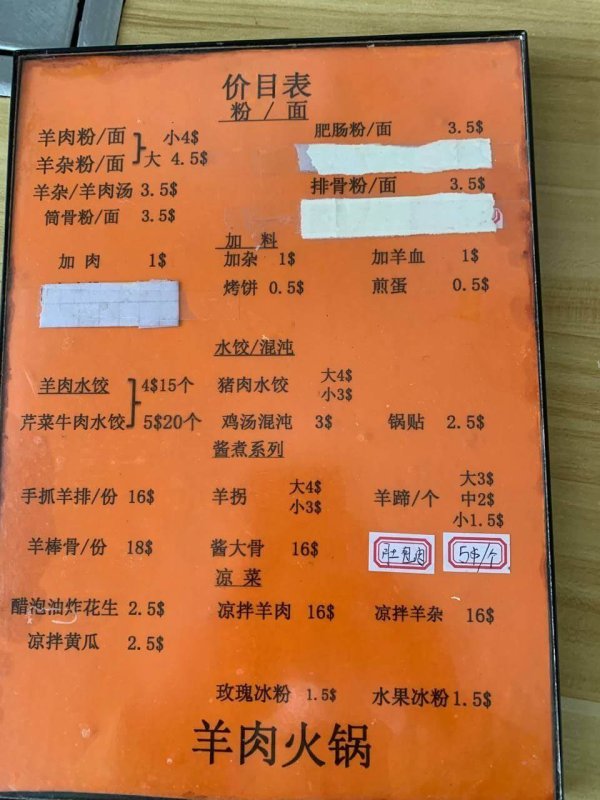 价目表
粉 / 面
羊肉粉/面 小4$
羊杂粉/面 大 4.5$
羊杂/羊肉汤 3.5$
筒骨粉/面 3.5$
肥肠粉/面 3.5$
排骨粉/面 3.5$
加 料
加 肉 1$ 加杂 1$ 加羊血 1$
烤饼 0.5$ 煎蛋 0.5$
水饺/混沌
羊肉水饺 4$15个
芹菜牛肉水饺 5$20个
猪肉水饺 大4$ 小3$
鸡汤混沌 3$ 锅贴 2.5$
酱煮系列
手抓羊排/份 16$ 羊拐 大4$ 小3$ 羊蹄/个 大3$ 中2$ 小1.5$
羊棒骨/份 18$ 酱大骨 16$ 肚包肉
凉 菜
醋泡油炸花生 2.5$ 凉拌羊肉 16$ 凉拌羊杂 16$
凉拌黄瓜 2.5$
玫瑰冰粉 1.5$ 水果冰粉1.5$
羊肉火锅